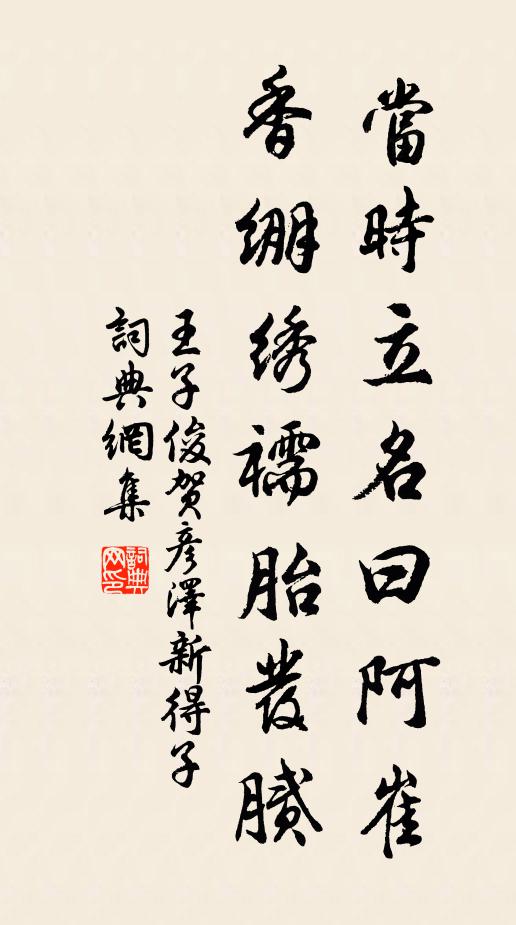 當時立名曰阿崔
香绷绣襦胎發膩
王子俊賀彦澤新得子
詞典網集
詞典網印